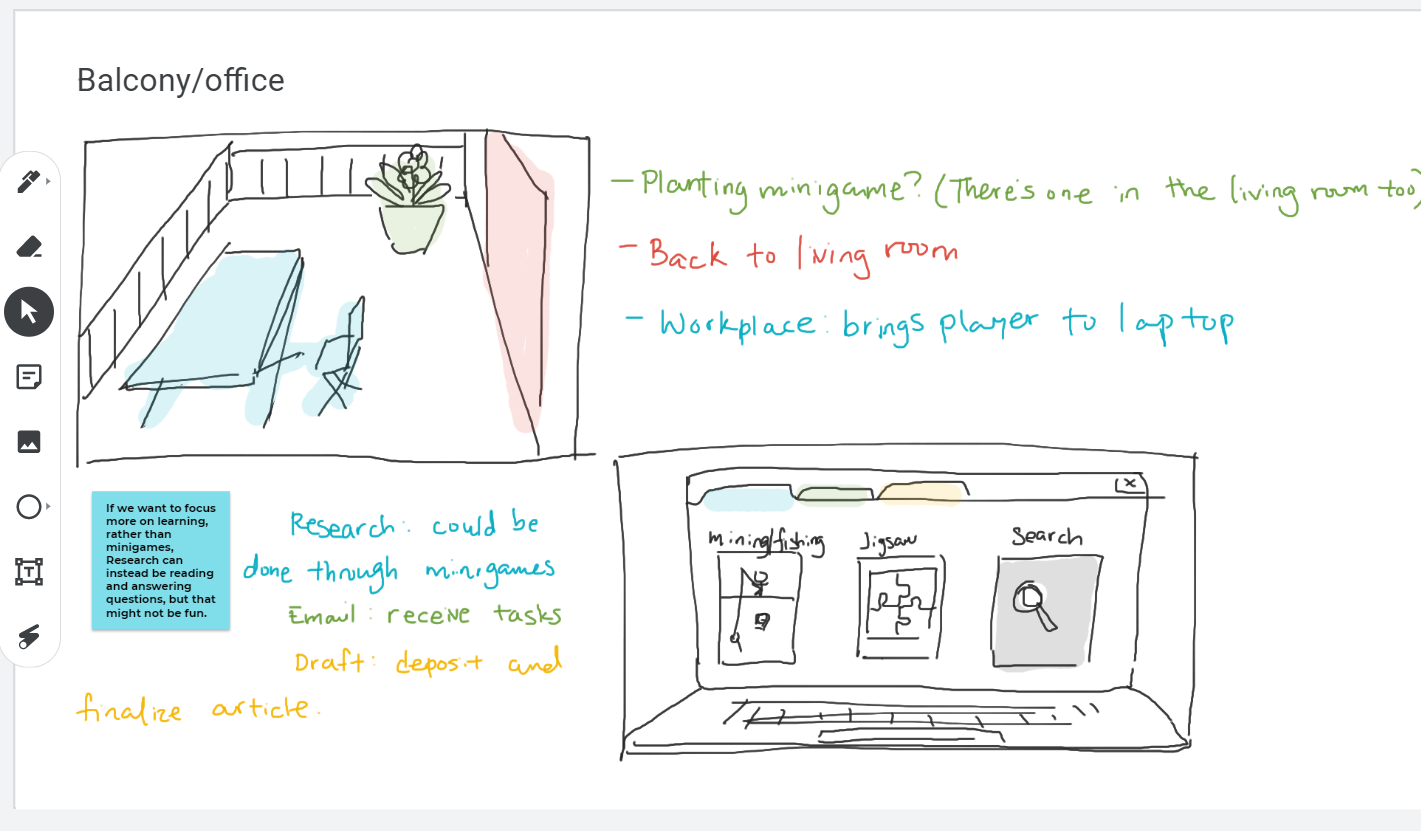 Balcony/office
– Planting minigame? (There's one in the living room too)
– Back to living room
– Workplace: brings player to laptop
If we want to focus
more on learning,
rather than
minigames,
Research can
instead be reading
and answering
questions, but that
might not be fun.
Research: could be
done through minigames
Email: receive tasks
Draft: deposit and
finalize article.
mining/fishing
Jigsaw
Search